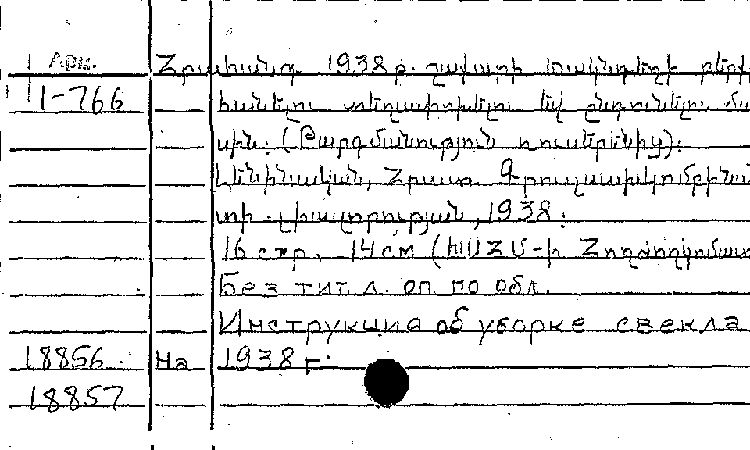 Арм. Հրահանգ 1938 թ. շաքարի ճակնդեղի բերքը
1-766 հանելու տեղափոխելու եվ ընդունելու մա
սին: (Թարգմանություն ռուսերենից):
Լենինական, Հրատ. Գրուշապխկոմբինա
տի լիազորության, 1938:
16 стр. 14 см (ԽՍՀՄ-ի Հողժողկոմատ
Без тит. л. оп. по обл.
Инструкция об уборке свекла
18856 На 1938 г.
18857